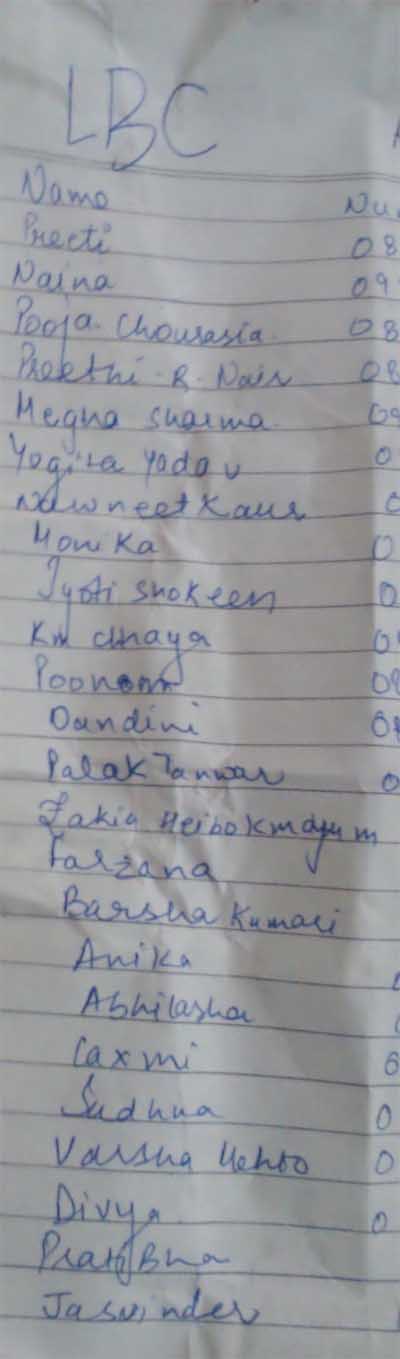 LBC
Name Nu
Preeti 08
Naina 09
Pooja Chourasia 08
Preethi R. Nair 08
Megna Sharma 09
Yogita Yadav 0
Navneet Kaur 0
Monika 0
Jyoti Shokeen 0
Km Chhaya 0
Poonam 08
Dandini 08
Palak Tanwar 0
Zakia Heibokmayum
Farzana
Barsha Kumari
Anika
Abhilasha
Laxmi 0
Sudhna 0
Varsha Mehto 0
Divya 0
Pratibha
Jasvinder